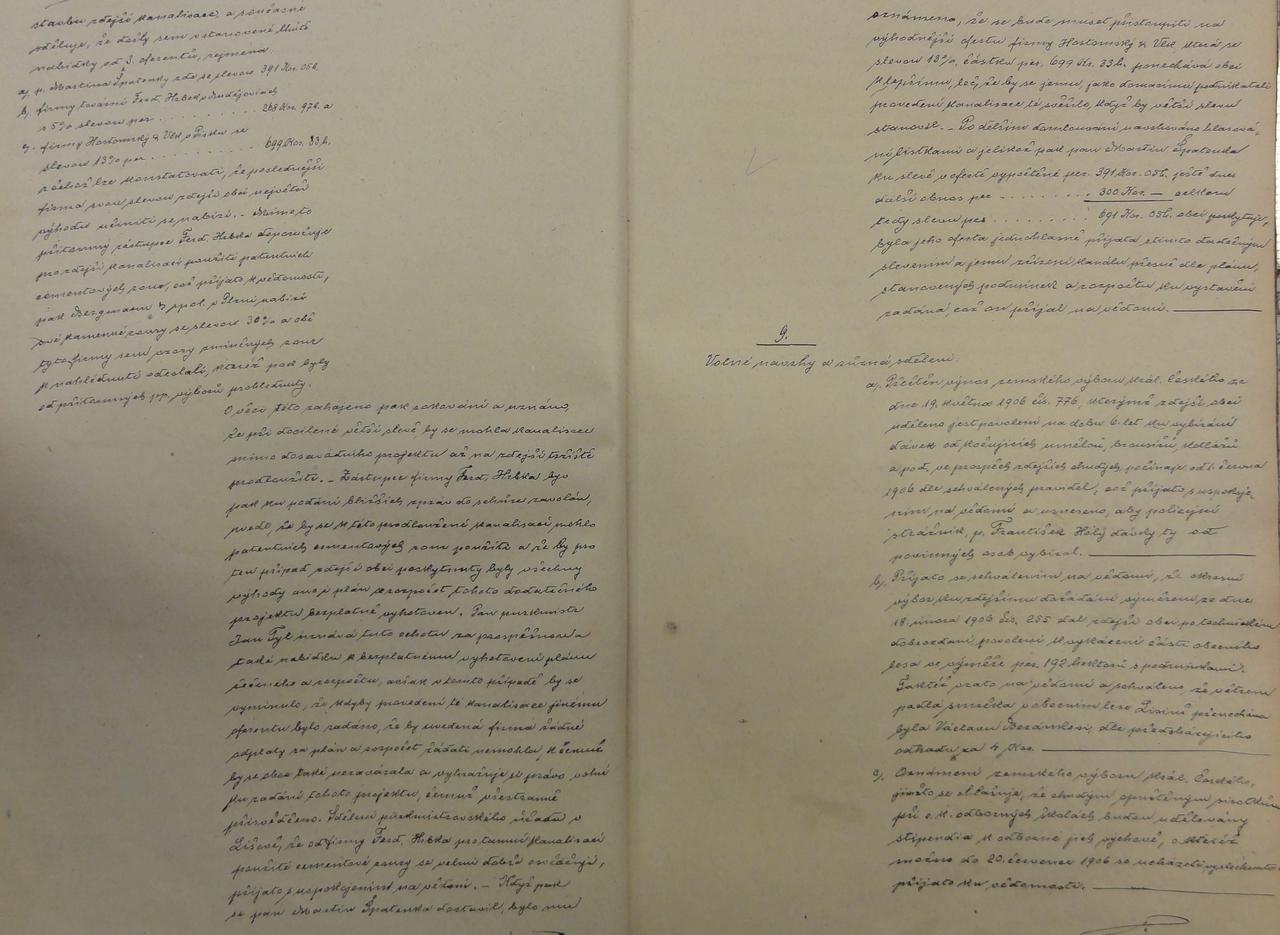 stavbu zdejší kanalisace, a současně
sděluje, že došly sem v stanovené lhůtě
nabídky od 3. oferentů, zejména
a) p. Martina Špatenky zde se slevou 391 Kor. 05h.
b) firmy tovární Ferd. Hrbek v Budějovicích
s 5% slevou per . . . . . . . . . . 268 Kor. 97h. a
c) firmy Hostomský & Vlk v Písku se
slevou 13% per . . . . . . . . . . 699 Kor. 33h.
z čehož lze konstatovati, že poslednější
firma svou slevou zdejší obci největší
výhodu učiniti se nabízí. – Mimo to
přítomný zástupce Ferd. Hrbka doporučuje
pro zdejší kanalisaci použití patentních
cementových rour, což přijato k vědomosti,
jak Bergmann & spol. v Plzni nabízí
své kamenné roury se slevou 30% a obě
tyto firmy sem vzory zmíněných rour
k nahlédnutí odeslali, kteréž pak byly
od přítomných pp. výborů prohlédnuty.
O věci této zahájeno pak rokování a uznáno,
že při docílené větší slevě, by se mohla kanalisace
mimo dosavadního projektu až na zdejší tržiště
prodloužiti. – Zástupce firmy Ferd. Hrbka byv
pak ku podání bližších zpráv do schůze zavolán,
uvedl, že by se k této prodloužené kanalisaci mohlo
patentních cementových rour použíti a že by pro
ten případ zdejší obci poskytnuty byly všechny
výhody ano i plán a rozpočet tohoto dodatečného
projektu bezplatně vyhotoven. Pan purkmistr
Jan Tyl uznává tuto ochotu za prospěšnou a
také nabídku k bezplatnému vyhotovení plánu
řečeného a rozpočtu, avšak v tomto případě by se
vyminulo, že kdyby provedení té kanalisace jinému
oferentu bylo zadáno, že by uvedená firma žádné
odplaty za plán a rozpočet žádati nemohla, k čemuž
by se obec také nezavázala a vyhražuje si právo volné
ku zadání tohoto projektu, čemuž všestranně
přisvědčeno. Sdělení purkmistrovského úřadu v
Lišově, že od firmy Ferd. Hrbka pro tamní kanalisaci
použité cementové roury se velmi dobře osvědčují,
přijato s uspokojením na vědomí. – Když pak
se pan Martin Špatenka dostavil, bylo mu
oznámeno, že se bude muset přistoupiti na
výhodnější ofertu firmy Hostomský & Vlk, která se
slevou 13%, částku per. 699 Kor. 33h. ponechává obci
k lepšímu, leč, že by se jemu, jako domácímu podnikateli
provedení kanalisace té svěřilo, když by větší slevu
stanovil. – Po delším domlouvání navrhováno hlasová-
ní lístkami a jelikož pak pan Martin Špatenka
ku slevě v ofertě vypočtěné per. 391 Kor. 05h. ještě dnes
další obnos per . . . . . . . . . 300 Kor. — celkem
tedy slevu per . . . . . . . . . 691 Kor. 05h. obci poskytuje,
byla jeho oferta jednohlasně přijata s tímto dodatečným
slevením a jemu zřízení kanálu přesně dle plánu,
stanovených podmínek a rozpočtu ku vystavění
zadána, což on přijal na vědomí.
9.
Volné návrhy a různá sdělení.
a). Přečtěn výnos zemského výboru král. Českého ze
dne 19. května 1906 čís. 776, kterýmž zdejší obci
uděleno jest povolení na dobu 6. let ku vybírání
dávek od kočujících umělců, brousičů, kotlářů
a pod. ve prospěch zdejších chudých počínaje od 1. června
1906 dle schválených pravidel, což přijato s uspokoje-
ním na vědomí a usneseno, aby policejní
strážník, p. František Holý dávky ty od
povinných osob vybíral.
b). Přijato se schválením na vědomí, že okresní
výbor ku zdejšímu dožádání výměrem ze dne
18. února 1906 čís. 255 dal zdejší obci po technickém
dobrozdání povolení k vykácení části obecního
lesa ve výměře per. 192 hektarů s podmínkami.
Taktéž vzato na vědomí a schváleno, že větrem
padlá smrčka v obecním lese Lisině přenechána
byla Václavu Beránkovi, dle předcházejícího
odhadu za 4 Kor.
c). Oznámení zemského výboru král. Českého,
jímžto se ohlašuje, že chudým opuštěným sirotkům
při c. k. odborných školách budou udělovány
stipendia k odborné jich výchově, o kteréž
možno do 20. července 1906 se ucházeti,
přijato ku vědomosti.